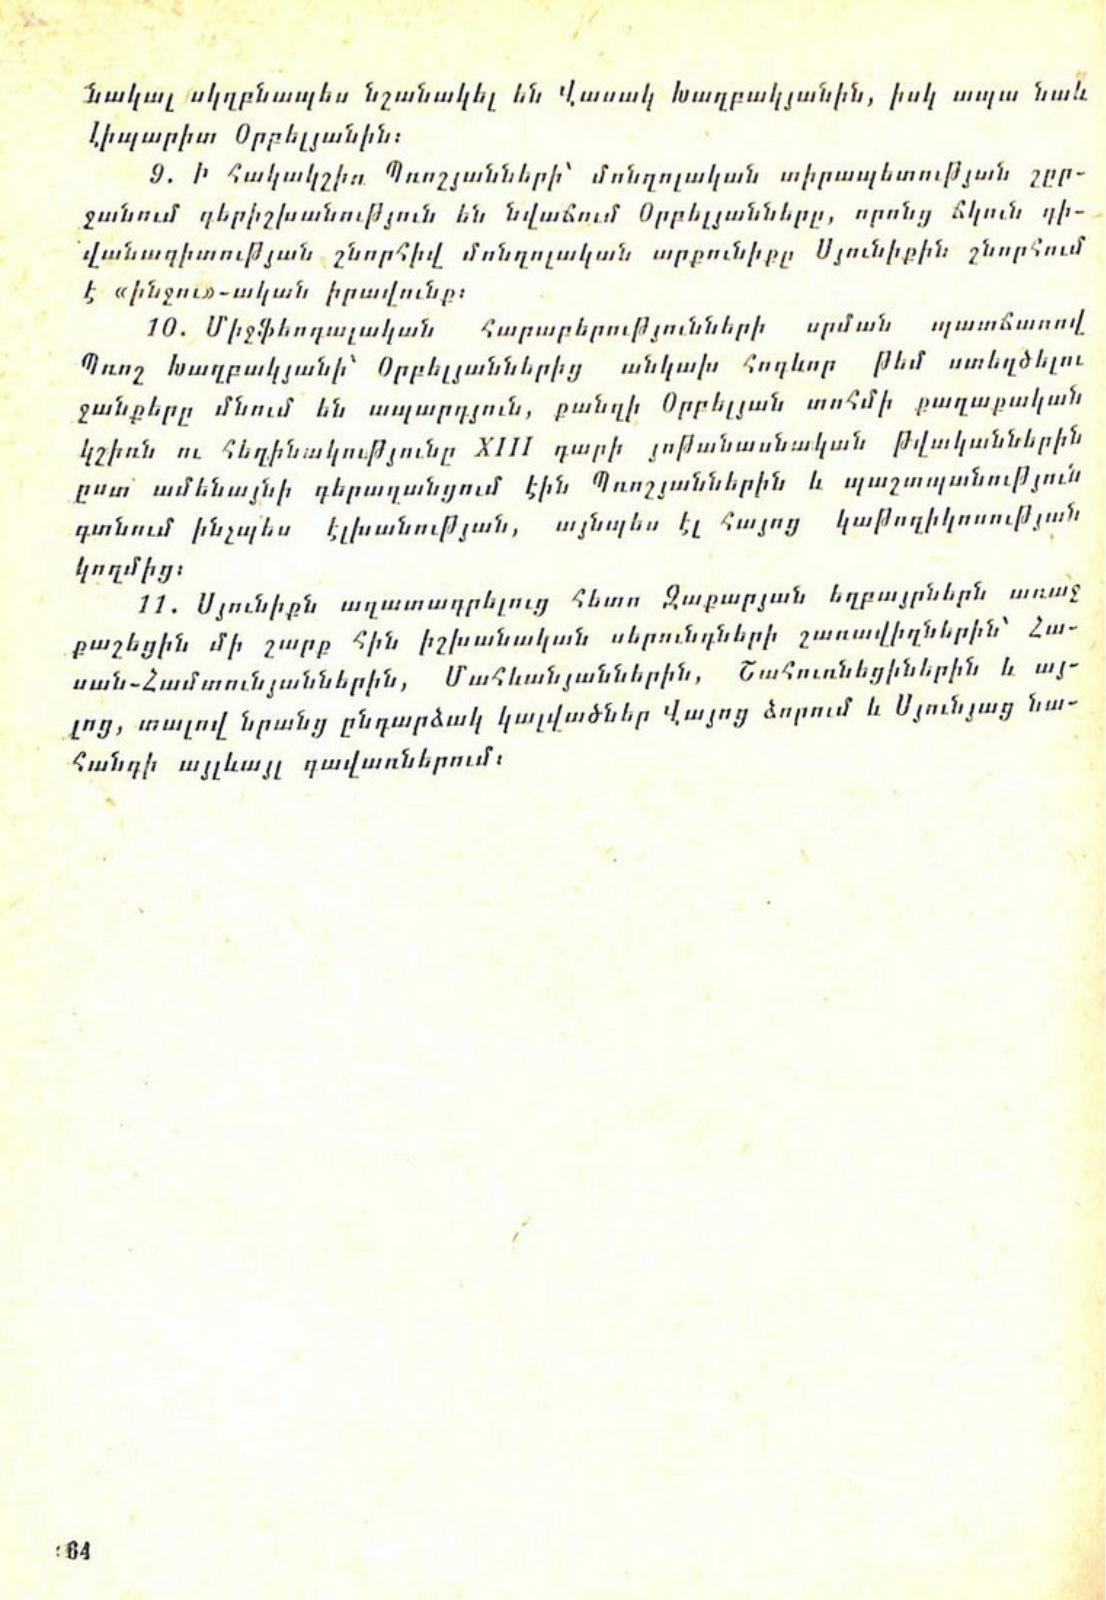 նակալ սկզբնապես նշանակել են Վասակ Խաղբակյանին, իսկ ապա նաև
Լիպարիտ Օրբելյանին։
9. Ի հակակշիռ Պռոշյանների՝ մոնղոլական տիրապետության շըր-
ջանում գերիշխանություն են նվաճում Օրբելյանները, որոնց ճկուն դի-
վանագիտության շնորհիվ մոնղոլական արքունիքը Սյունիքին շնորհում
է «ինջու»-ական իրավունք։
10. Միջֆեոդալական հարաբերությունների սրման պատճառով
Պռոշ Խաղբակյանի՝ Օրբելյաններից անկախ հոգևոր թեմ ստեղծելու
ջանքերը մնում են ապարդյուն, քանզի Օրբելյան տոհմի քաղաքական
կշիռն ու հեղինակությունը XIII դարի յոթանասնական թվականներին
ըստ ամենայնի գերազանցում էին Պռոշյաններին և պաշտպանություն
գտնում ինչպես էլխանության, այնպես էլ Հայոց կաթողիկոսության
կողմից։
11. Սյունիքն ազատագրելուց հետո Զաքարյան եղբայրներն առաջ
քաշեցին մի շարք հին իշխանական սերունդների շառավիղներին՝ Հա-
սան-Համտունյաններին, Մահևանյաններին, Շահուռնեցիներին և այ-
լոց, տալով նրանց ընդարձակ կալվածներ Վայոց ձորում և Սյունյաց նա-
հանգի այլևայլ գավառներում։
64